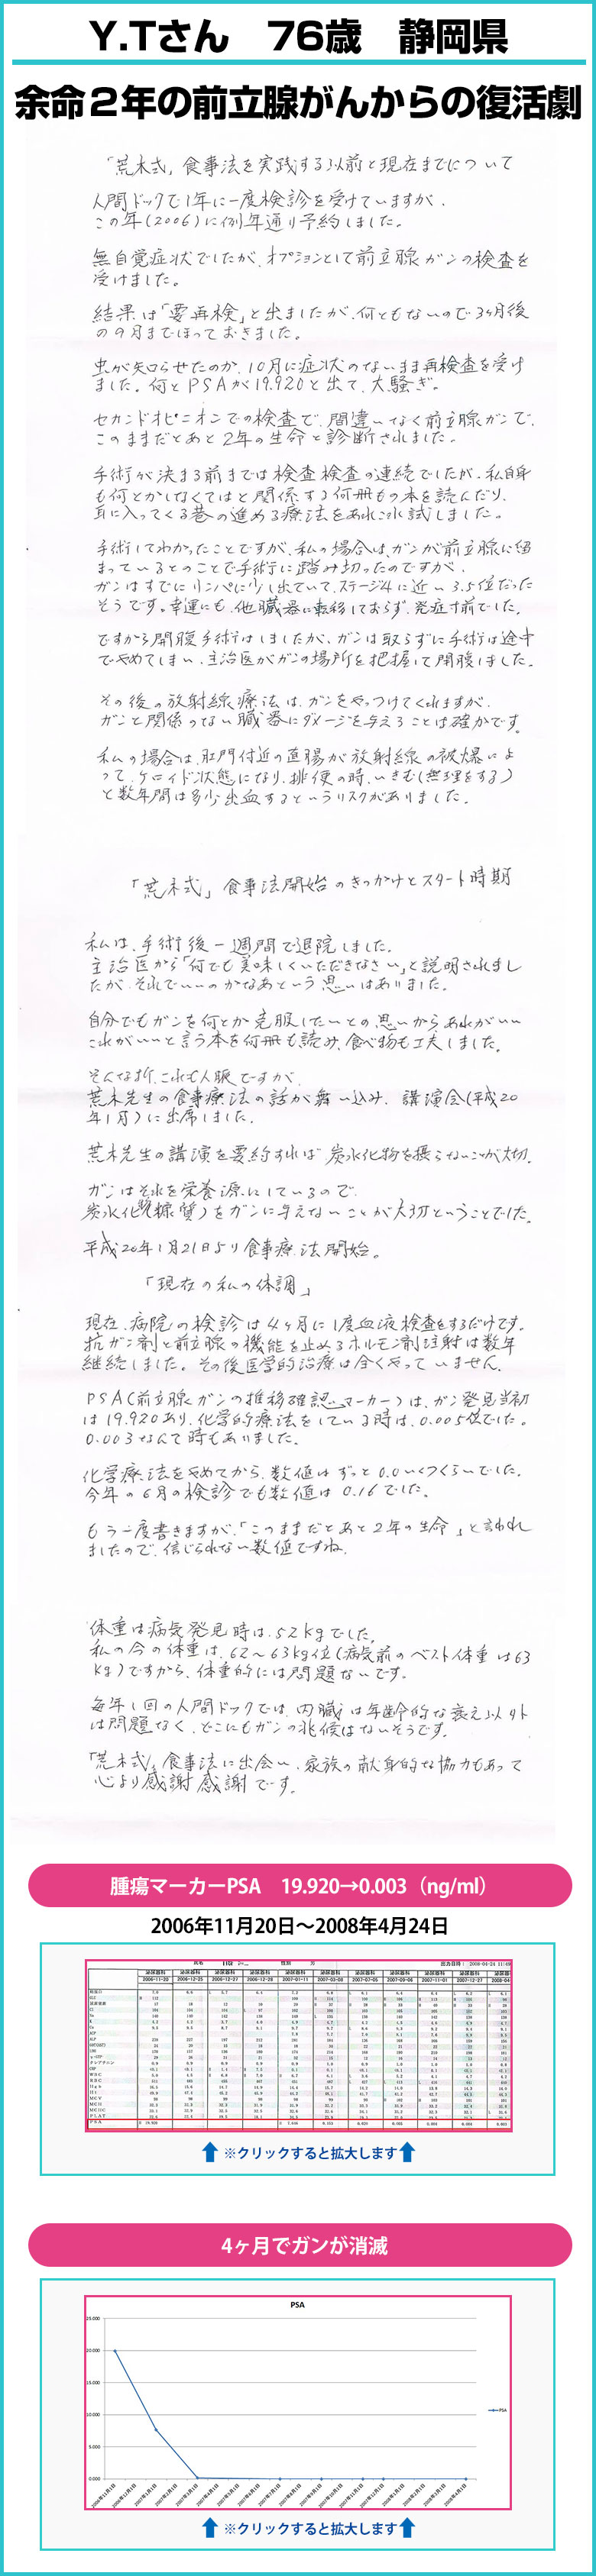 Y.Tさん　76歳　静岡県
余命２年の前立腺がんからの復活劇
「荒木式」食事法を実践する以前と現在までについて
人間ドックで1年に一度検診を受けていますが、
この年(2006)に例年通り予約しました。
無自覚症状でしたが、オプションとして前立腺ガンの検査を
受けました。
結果は「要再検」と出ましたが、何ともないので3ヶ月後
の9月までほっておきました。
虫が知らせたのか、10月に症状のないまま再検査を受け
ました。何とPSAが19.920と出て、大騒ぎ。
セカンドオピニオンでの検査で、間違いなく前立腺ガンで、
このままだとあと2年の生命と診断されました。
手術が決まる前までは検査検査の連続でしたが、私自身
も何とかしなくてはと関係する何冊もの本を読んだり、
耳に入ってくる巷の進める療法をあれこれ試しました。
手術してわかったことですが、私の場合は、ガンが前立腺に留
まっているとのことで手術に踏み切ったのですが、
ガンはすでにリンパに少し出ていて、ステージ4に近い3.5位だった
そうです。幸運にも、他臓器に転移しておらず、発症寸前でした。
ですから開腹手術はしましたが、ガンは取らずに手術は途中
でやめてしまい、主治医がガンの場所を把握して閉腹しました。
その後の放射線療法は、ガンをやっつけてくれますが、
ガンと関係のない臓器にダメージを与えることは確かです。
私の場合は、肛門付近の直腸が放射線の被爆によ
って、ケロイド状態になり、排便の時、いきむ(無理をする)
と数年間は多少出血するというリスクがありました。
「荒木式」食事法開始のきっかけとスタート時期
私は、手術後一週間で退院しました。
主治医から「何でも美味しくいただきなさい」と説明されまし
たが、それでいいのかなあという思いはありました。
自分でもガンを何とか克服したいとの思いからあれがいい
これがいいと言う本を何冊も読み、食べ物も工夫しました。
そんな折、これも人脈ですが、
荒木先生の食事療法の話が舞い込み、講演会(平成20
年1月)に出席しました。
荒木先生の講演を要約すれば、炭水化物を摂らないことが大切。
ガンはそれを栄養源にしているので、
炭水化物(糖質)をガンに与えないことが大切ということでした。
平成20年1月21日より食事療法開始。
「現在の私の体調」
現在、病院の検診は4ヶ月に1度血液検査をするだけです。
抗ガン剤と前立腺の機能を止めるホルモン剤注射は数年
継続しました。その後医学的治療は全くやっていません。
PSA(前立腺ガンの推移確認マーカー)は、ガン発見当初
は19.920あり、化学的療法をしている時は、0.005位でした。
0.003なんて時もありました。
化学療法をやめてから、数値はずっと0.0いくつくらいでした。
今年の6月の検診でも数値は0.16でした。
もう一度書きますが、「このままだとあと2年の生命」と言われ
ましたので、信じられない数値ですね。
体重は病気発見時は、52kgでした。
私の今の体重は、62～63kg位(病気前のベスト体重は63
kg)ですから、体重的には問題ないです。
毎年1回の人間ドックでは、内臓は年齢的な衰え以外
は問題なく、どこにもガンの兆候はないそうです。
「荒木式」食事法に出会い、家族の献身的な協力もあって
心より感謝感謝です。
腫瘍マーカーPSA　19.920→0.003（ng/ml）
2006年11月20日～2008年4月24日
※クリックすると拡大します
4ヶ月でガンが消滅
PSA
25.000
20.000
15.000
10.000
5.000
0.000
PSA
※クリックすると拡大します